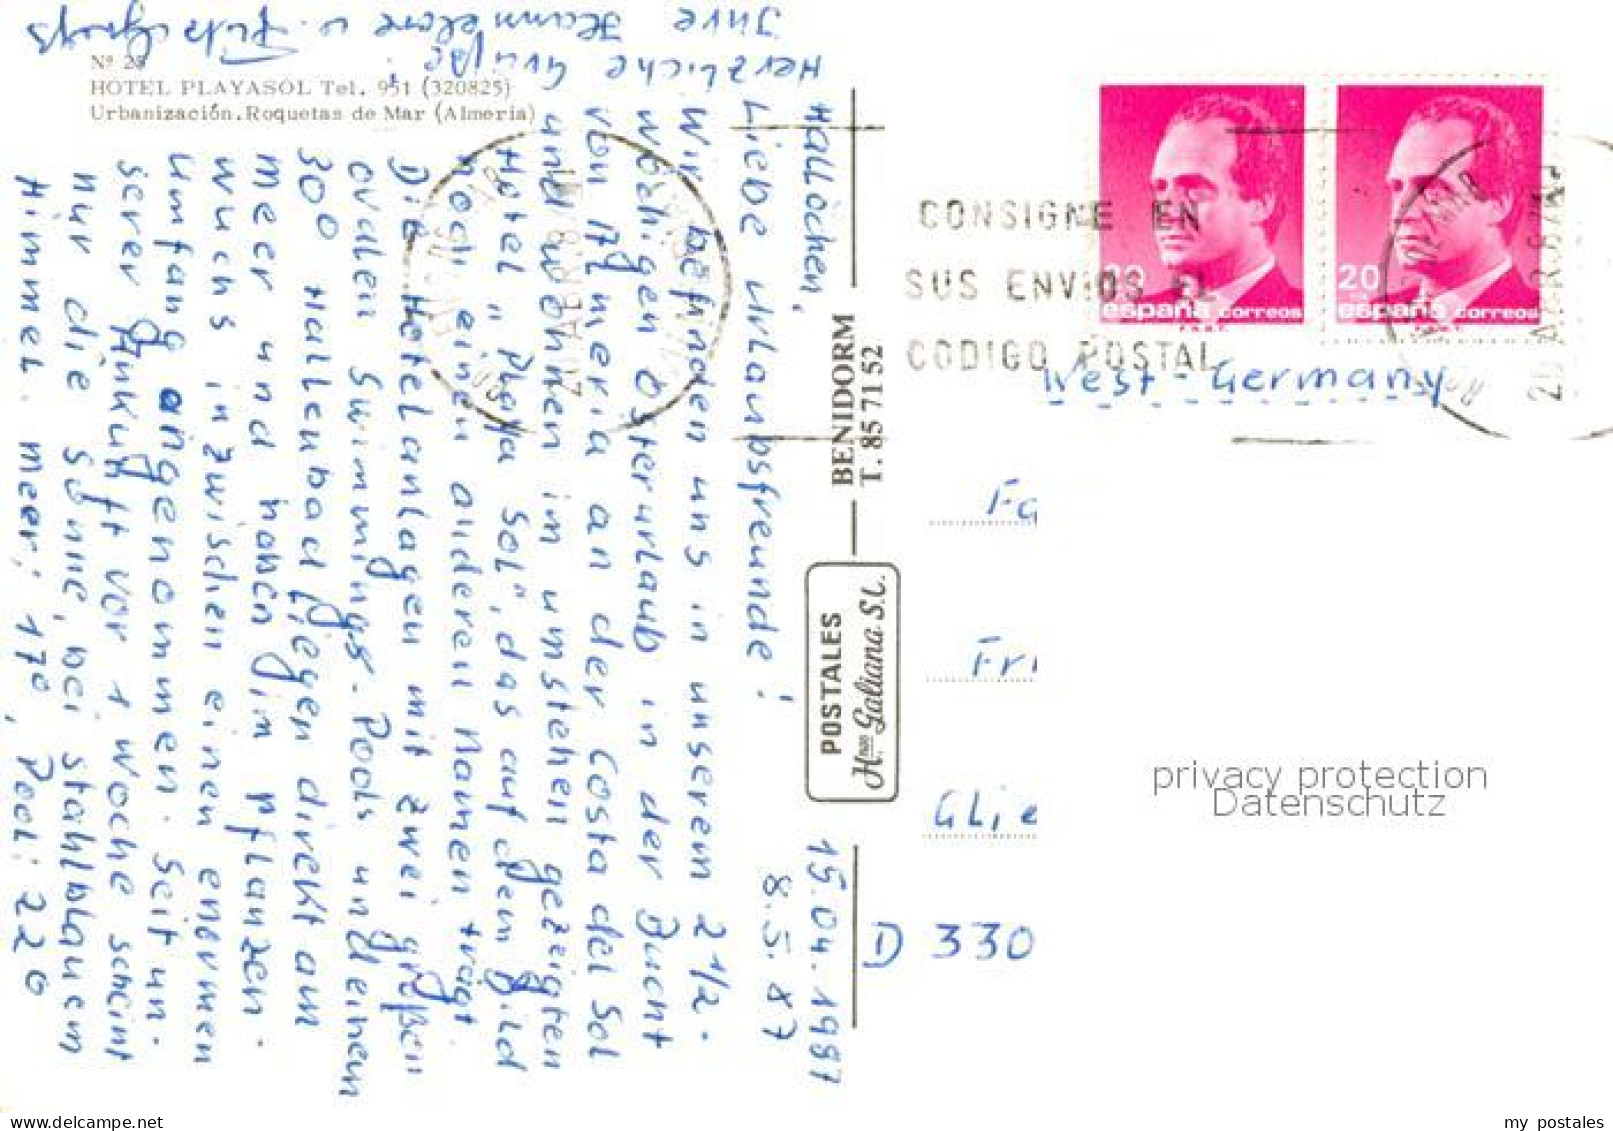 Nº 28
HOTEL PLAYASOL Tel. 951 (320825)
Urbanización. Roquetas de Mar (Almeria)
15.04.1987
8.5.87
Hallöchen,
Liebe Urlaubsfreunde!
Wir befinden uns in unserem 2 1/2-
wöchigen Osterurlaub in der Bucht
von Almeria an der Costa del Sol
und wohnen im umstehen gezeigten
Hotel „Playa Sol", das auf dem Bild
noch einen anderen Namen trägt.
Die Hotelanlagen mit zwei großen
ovalen Swimmings-Pools und einem
30° Hallenbad liegen direkt am
Meer und haben im Pflanzen-
wuchs inzwischen einen enormen
Umfang angenommen. Seit un-
serer Ankunft vor 1 Woche scheint
nur die Sonne, bei stahlblauem
Himmel. Meer: 17°, Pool: 22°
Herzliche Grüße
Ihre Hannelore u.
BENIDORM
T. 85 71 52
POSTALES
Hnos Galiana S.L.
CONSIGNE EN
SUS ENVIOS EL
CODIGO POSTAL
20
españa correos
F.N.M.T.
20
españa correos
F.N.M.T.
West-Germany
Fa
Fri
Glie
D 330
privacy protection
Datenschutz
my postales